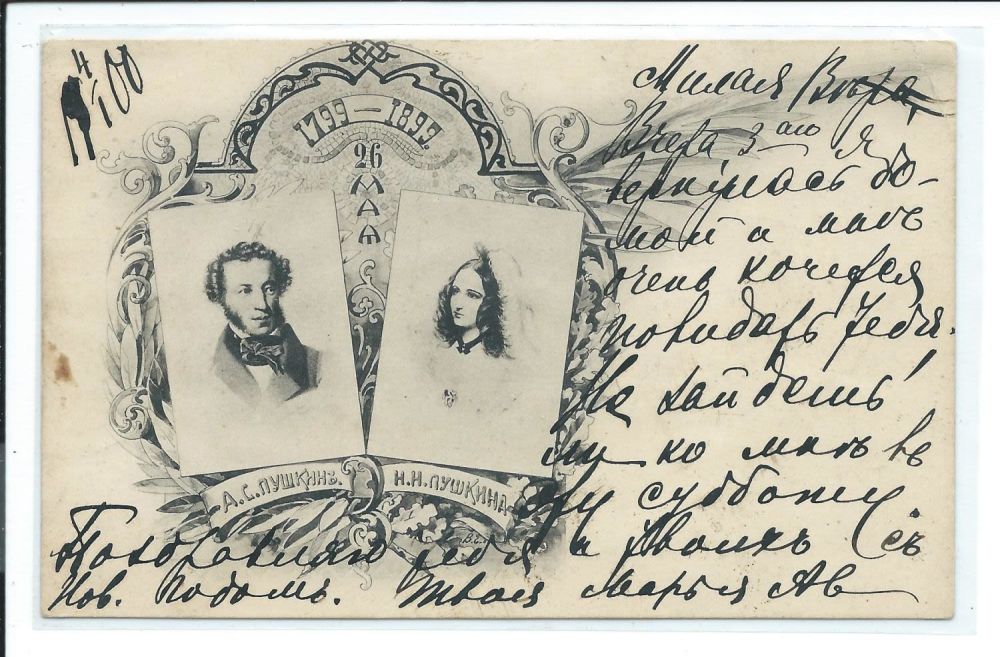 4/I 00
1799—1899
26
МАЯ
А.С.ПУШКИНЪ.
Н.Н.ПУШКИНА
Милая Вѣра,
Вчера 3аго я
вернулась до-
мой и мнѣ
очень хочется
повидать тебя.
Не зайдешь
ли ко мнѣ въ
эту субботу
Поздравляю тебя и твоихъ съ
Нов. Годомъ. Твоя Марья Ав